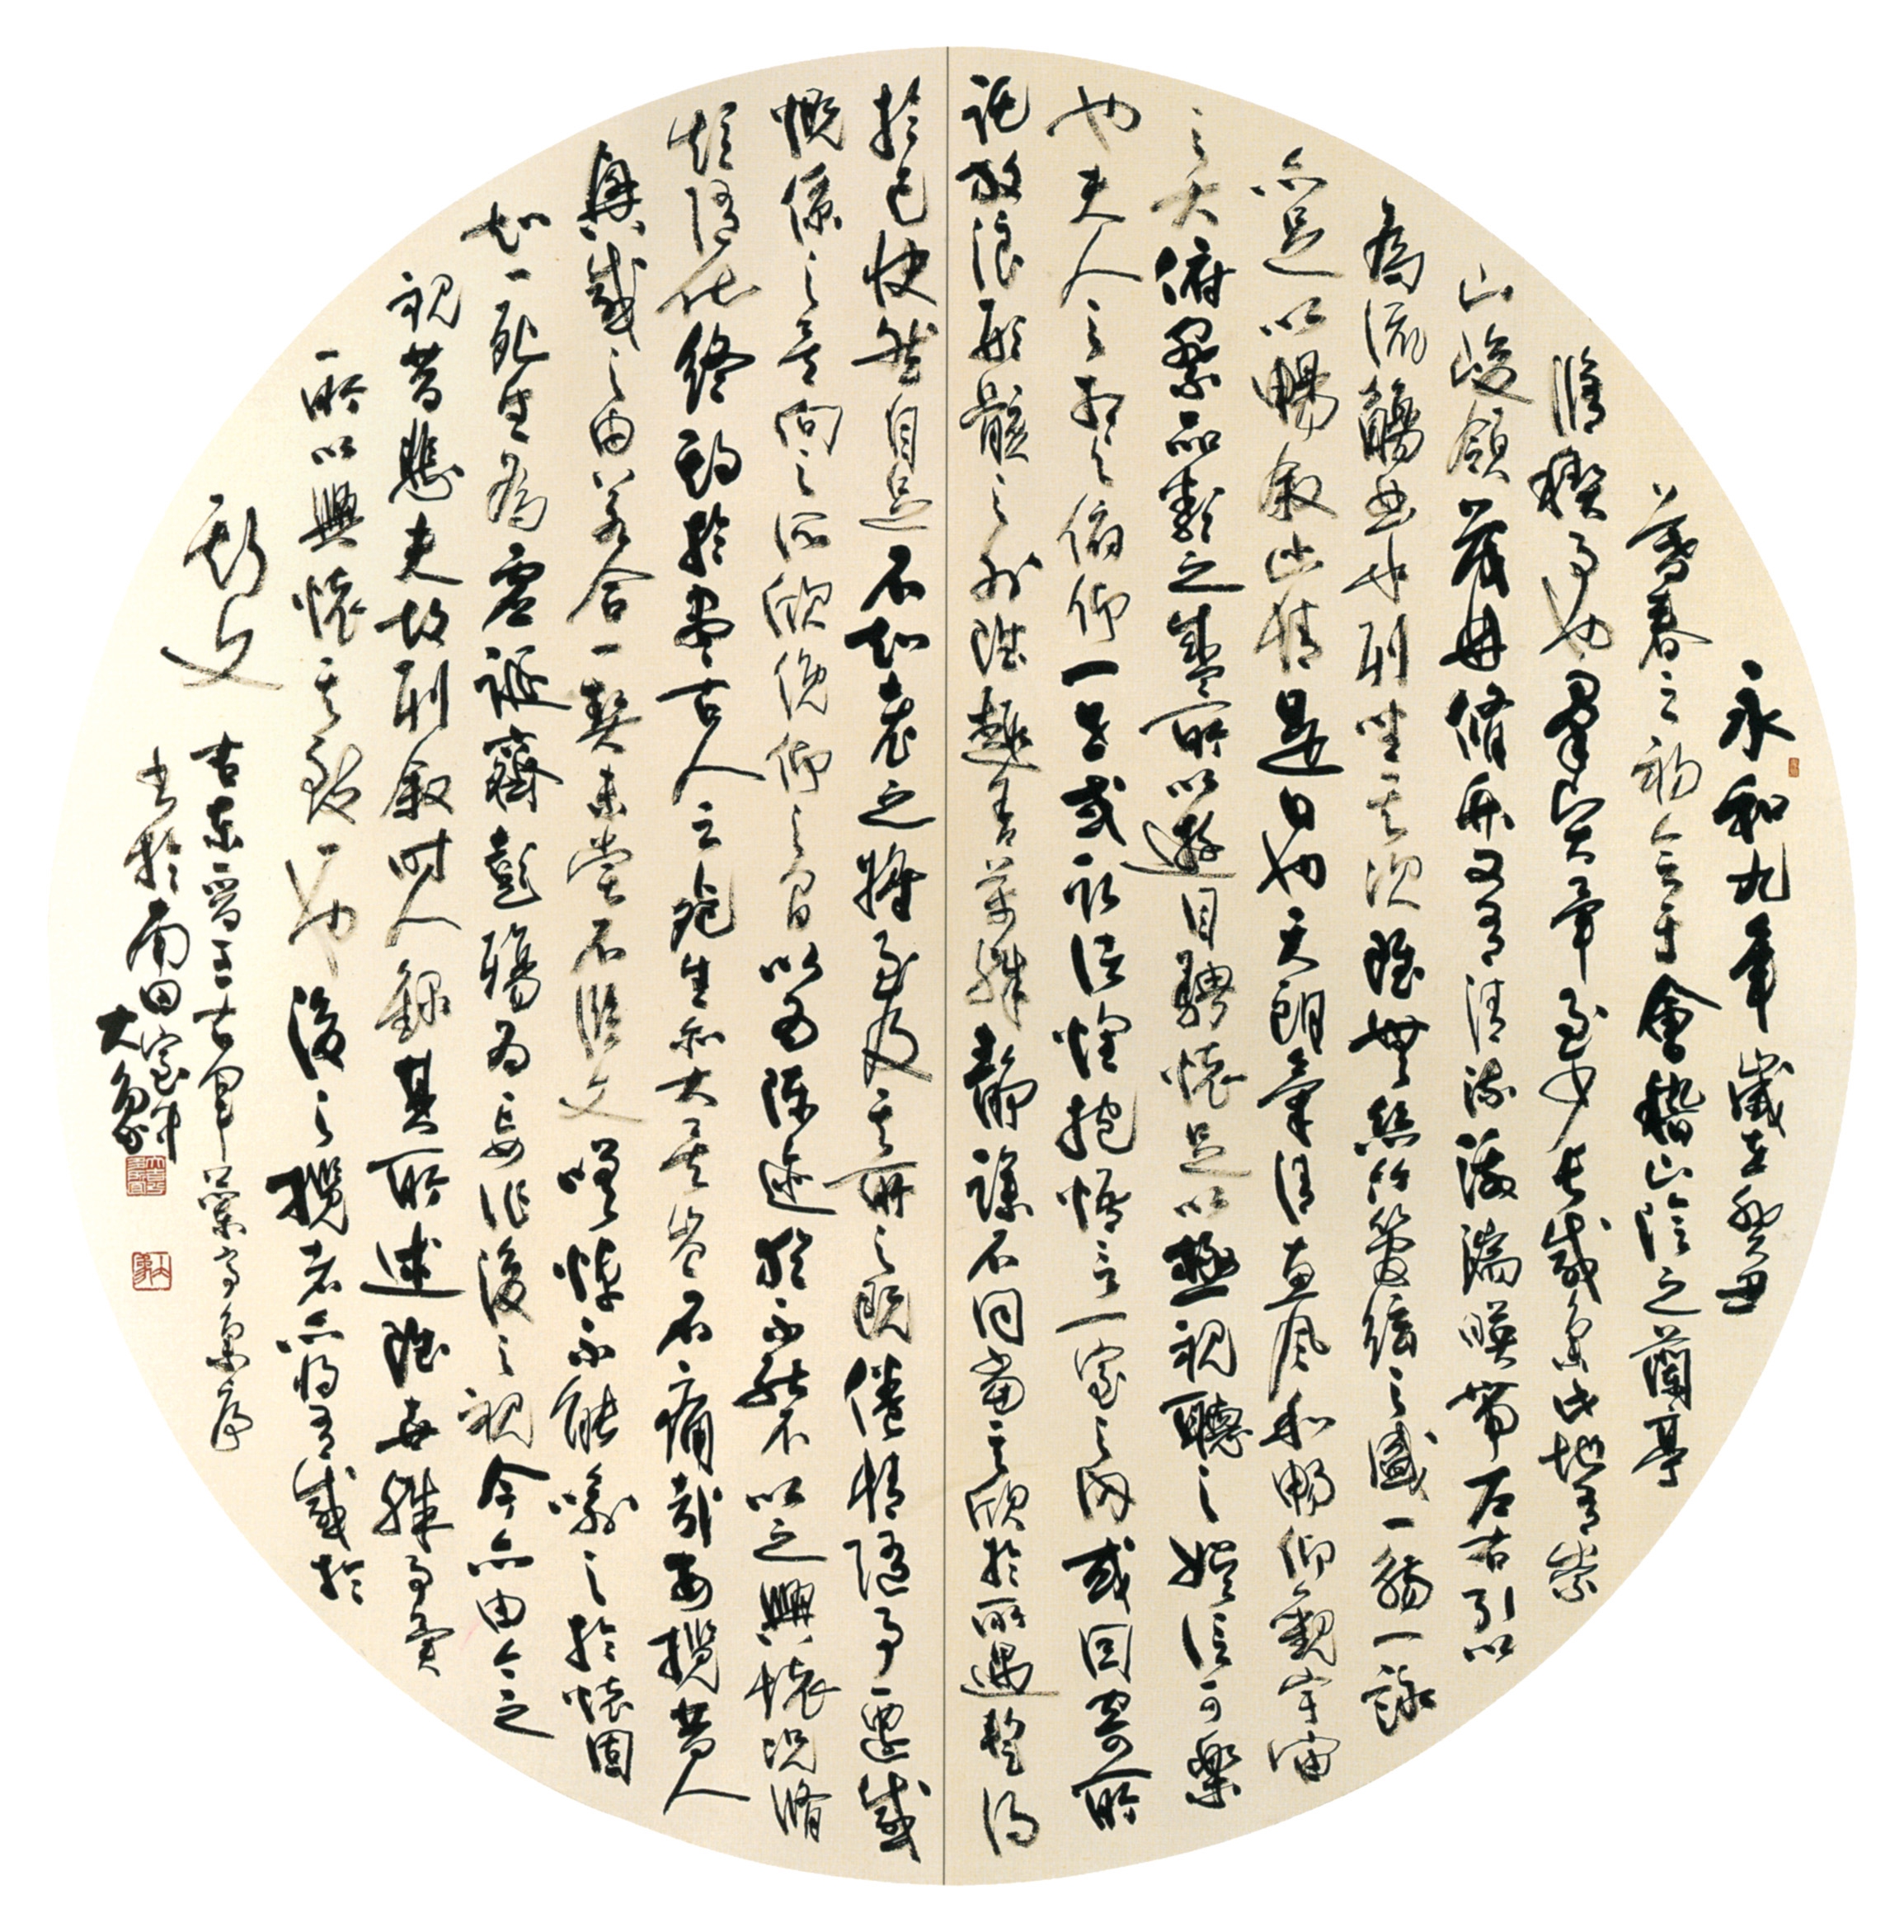 永和九年歲在癸丑
暮春之初會于會稽山陰之蘭亭
脩稧事也羣賢畢至少長咸集此地有崇
山峻領茂林脩竹又有清流激湍暎帶左右引以
為流觴曲水列坐其次雖無絲竹管絃之盛一觴一詠
亦足以暢叙幽情是日也天朗氣清惠風和暢仰觀宇宙
之大俯察品類之盛所以遊目騁懷足以極視聽之娛信可樂
也夫人之相與俯仰一世或取諸懷抱悟言一室之內或因寄所
託放浪形骸之外雖趣舍萬殊靜躁不同當其欣於所遇暫得
於己快然自足不知老之將至及其所之既倦情隨事遷感
慨係之矣向之所欣俛仰之間以為陳迹猶不能不以之興懷況脩
短隨化終期於盡古人云死生亦大矣豈不痛哉每攬昔人
興感之由若合一契未嘗不臨文嗟悼不能喻之於懷固
知一死生為虛誕齊彭殤為妄作後之視今亦由今之
視昔悲夫故列叙時人錄其所述雖世殊事異
所以興懷其致一也後之攬者亦將有感於
斯文
古東晉王右軍蘭亭集序
書於南田室中
大象